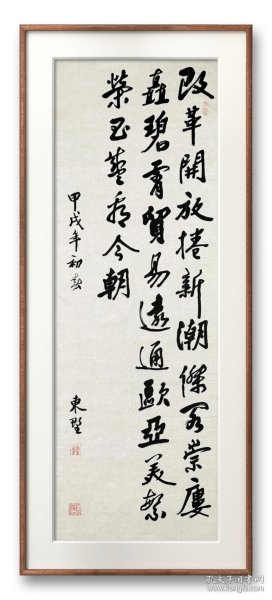 改革開放捲新潮傑閣崇廔
矗碧霄貿易遠通歐亞美繁
榮玉看今朝
甲戌年初春
東
孔夫子旧书网